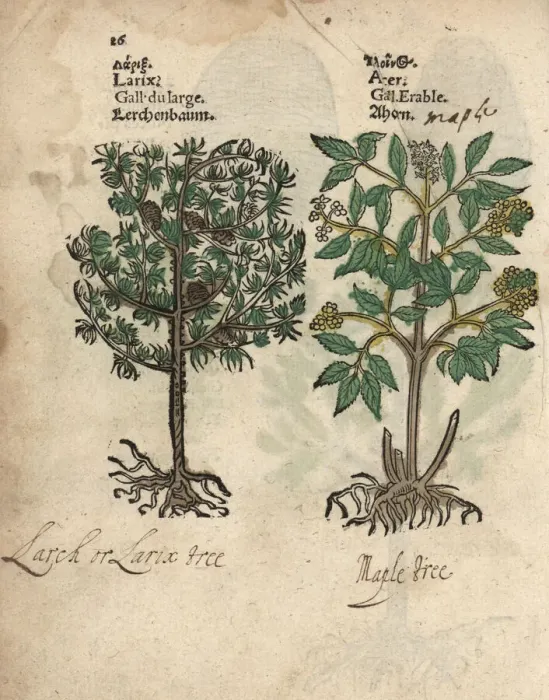 26
Λάριξ.
Larix.
Gall. du large.
Lerchenbaum.
Acer.
Gal. Erable.
Ahorn. maple
Larch or Larix tree
Maple tree